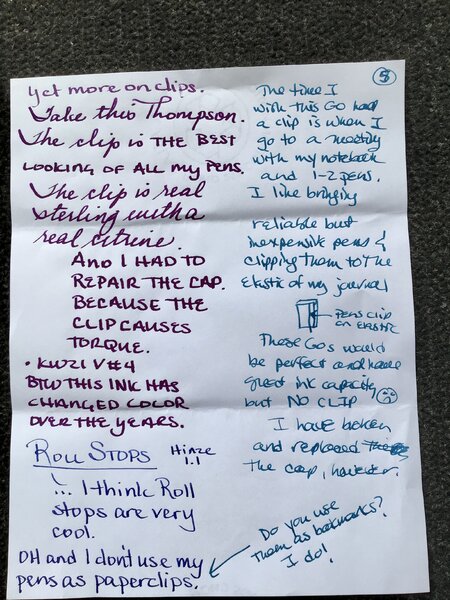 yet more on clips.
Take this Thompson.
The clip is THE BEST
LOOKING OF ALL MY PENS.
The clip is real
sterling with a
real citrine.
AND I HAD TO
REPAIR THE CAP.
BECAUSE THE
CLIP CAUSES
TORQUE.
• KWZI V#4
BTW THIS INK HAS
CHANGED COLOR
OVER THE YEARS.
ROLL STOPS
Hinze
1.1
... I think Roll
stops are very
cool.
OH and I don't use my
pens as paperclips.
5
The time I
wish this Go had
a clip is when I
go to a meeting
with my notebook
and 1-2 pens.
I like bringing
reliable but
inexpensive pens &
clipping them to the
elastic of my journal
PENS CLIP
ON ELASTIC
These Go's would
be perfect and have
great ink capacity
but NO CLIP
I have broken
and replaced
the cap, however.
Do you use
them as bookmarks?
I do!